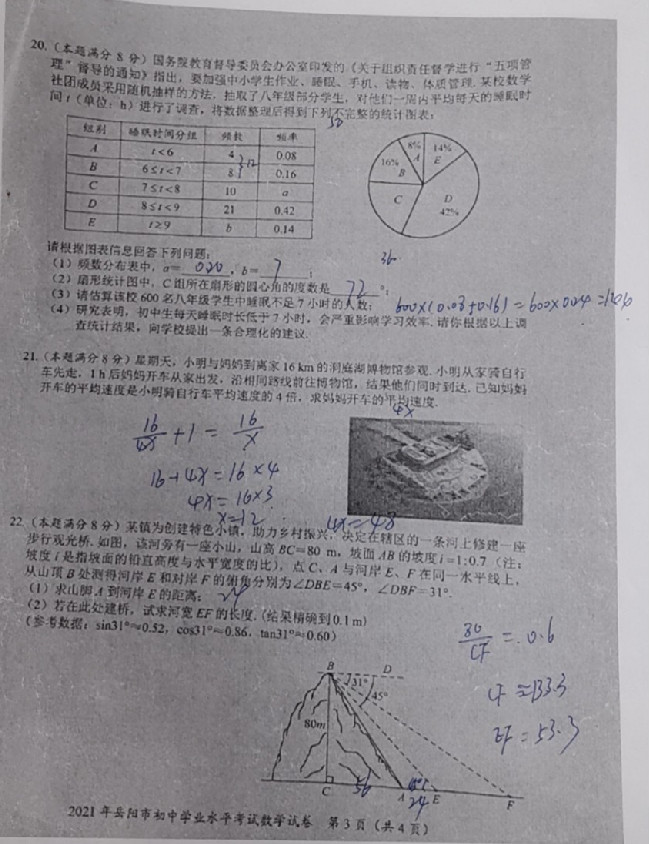 20.（本题满分 8 分）国务院教育督导委员会办公室印发的《关于组织责任督学进行“五项管
理”督导的通知》指出，要加强中小学生作业、睡眠、手机、读物、体质管理. 某校数学
社团成员采用随机抽样的方法，抽取了八年级部分学生，对他们一周内平均每天的睡眠时
间 t（单位：h）进行了调查，将数据整理后得到下列不完整的统计图表：
50
组别 睡眠时间分组 频数 频率
A t<6 4 0.08
B 6≤t<7 8 0.16
C 7≤t<8 10 a
D 8≤t<9 21 0.42
E t≥9 b 0.14
12
8% A
14% E
16% B
C
D 42%
请根据图表信息回答下列问题：
（1）频数分布表中，a= 0.20 ，b= 7 ；
36
（2）扇形统计图中，C 组所在扇形的圆心角的度数是 72 °；
（3）请估算该校 600 名八年级学生中睡眠不足 7 小时的人数；
600×(0.08+0.16)=600×0.24=
（4）研究表明，初中生每天睡眠时长低于 7 小时，会严重影响学习效率. 请你根据以上调
查统计结果，向学校提出一条合理化的建议.
21.（本题满分 8 分）星期天，小明与妈妈到离家 16 km 的洞庭湖博物馆参观. 小明从家骑自行
车先走，1 h 后妈妈开车从家出发，沿相同路线前往博物馆，结果他们同时到达. 已知妈妈
开车的平均速度是小明骑自行车平均速度的 4 倍，求妈妈开车的平均速度.
4x
16/4x +1= 16/x
16+4x=16×4
4x=16×3
x=12
4x=48
22.（本题满分 8 分）某镇为创建特色小镇，助力乡村振兴，决定在辖区的一条河上修建一座
步行观光桥. 如图，该河旁有一座小山，山高 BC=80 m，坡面 AB 的坡度 i=1:0.7（注：
坡度 i 是指坡面的铅直高度与水平宽度的比），点 C、A 与河岸 E、F 在同一水平线上，
从山顶 B 处测得河岸 E 和对岸 F 的俯角分别为∠DBE=45°，∠DBF=31°.
（1）求山脚 A 到河岸 E 的距离；
24
（2）若在此处建桥，试求河宽 EF 的长度.（结果精确到 0.1 m）
（参考数据：sin31°≈0.52，cos31°≈0.86，tan31°≈0.60）
80/CF =0.6
CF≈133.3
EF=53.3
B
D
31°
45°
80m
C
56
A
24
E
F
2021 年岳阳市初中学业水平考试数学试卷 第 3 页（共 4 页）